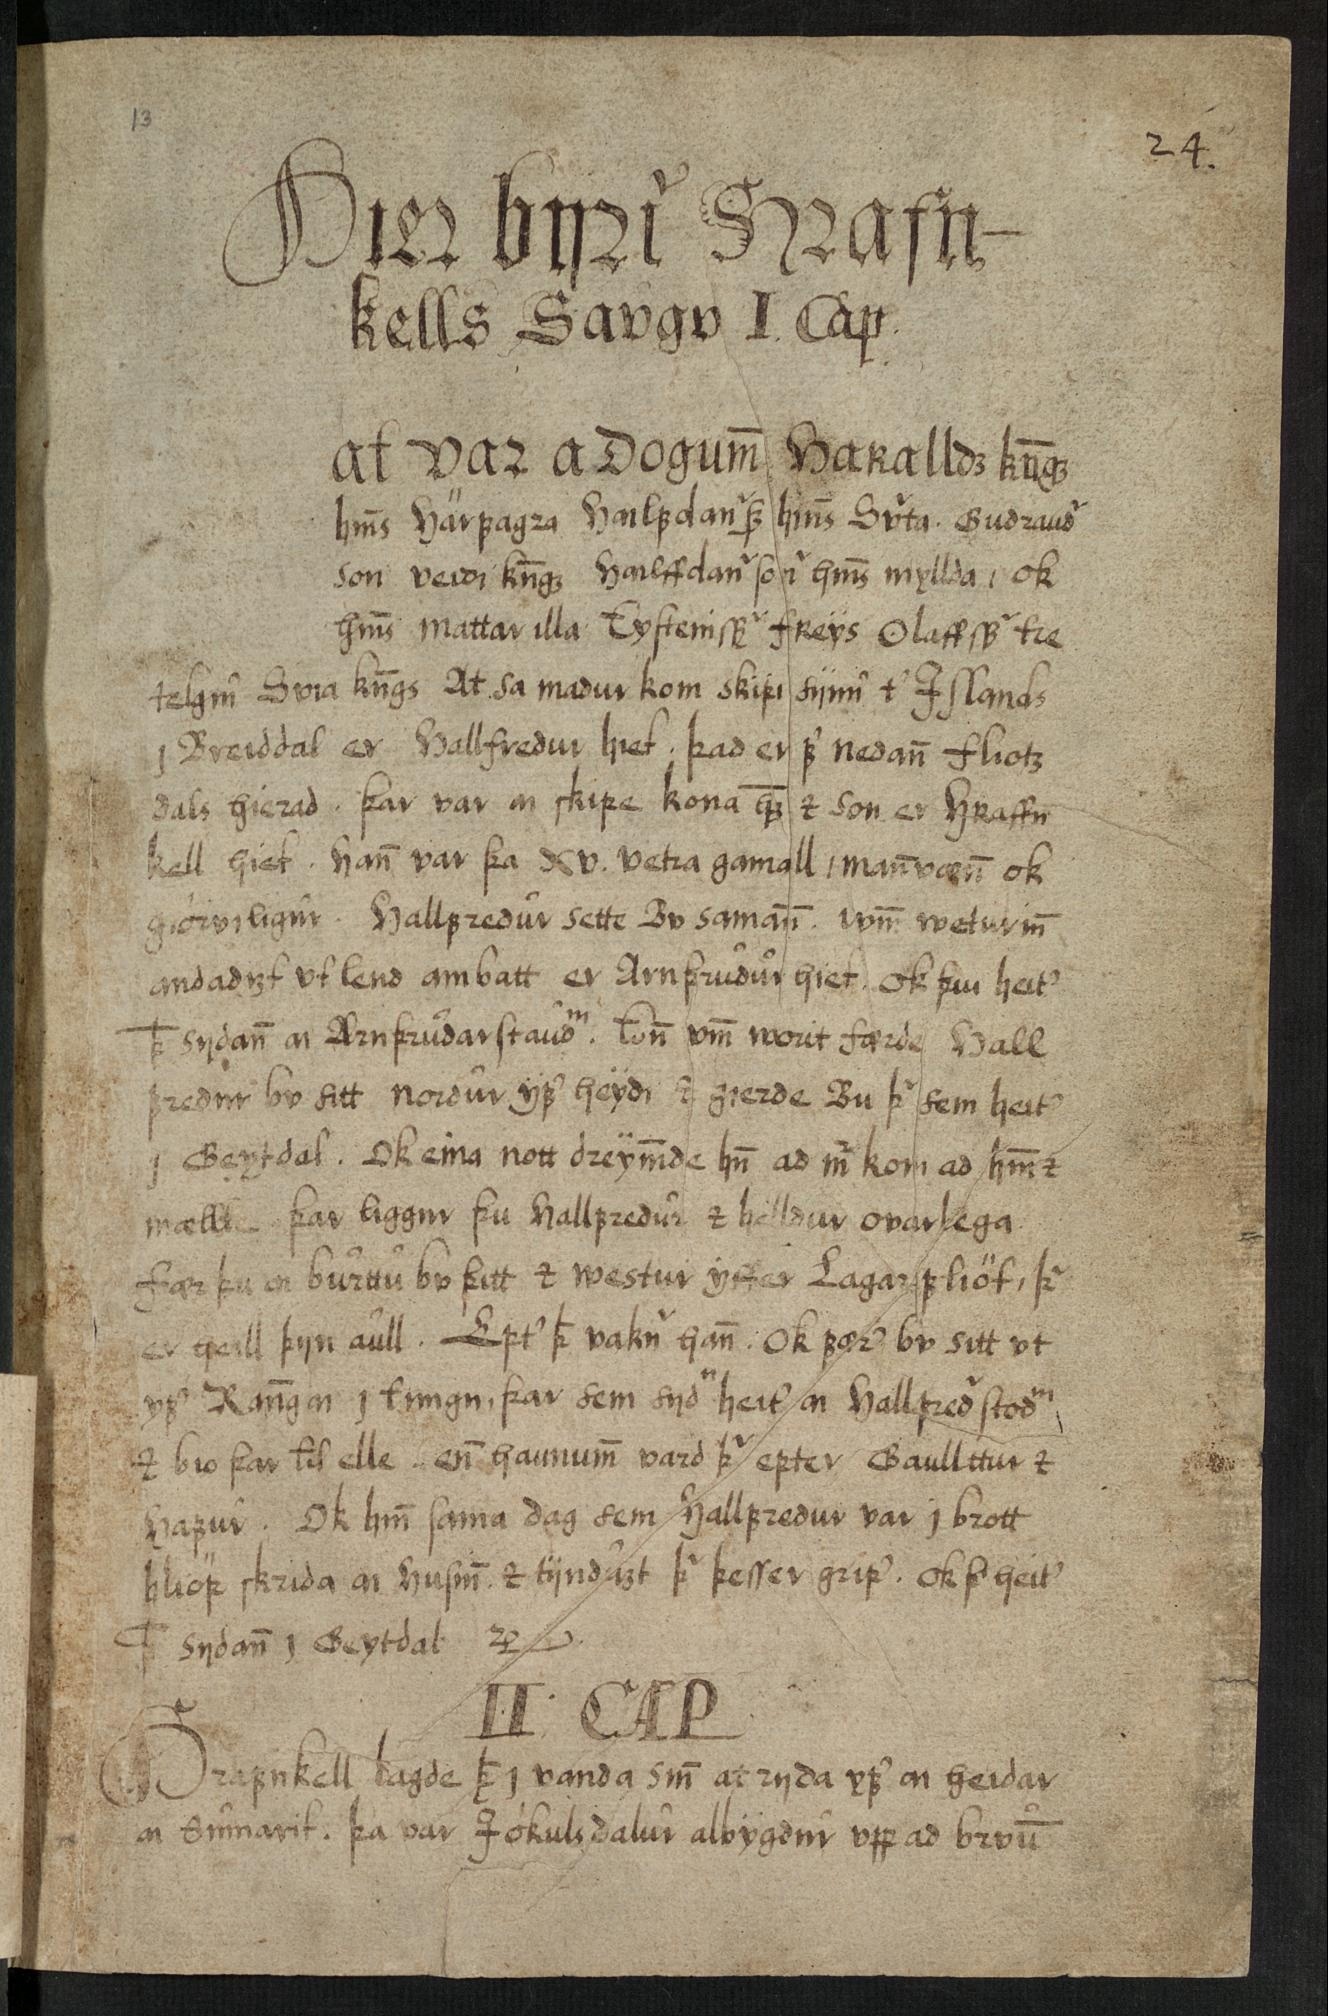 13
24.
Hier byriꝛ Hrafn-
kells Saugu I Cap.
at var a Dogum̅ Haralldz kn̅gz
hin̅s Härfagra Halfdanꝛ s̅ hin̅s Suꝛta. Gudraudꝛ
son veidi kn̅gz Halffdanꝛ sonꝛ hin̅s myllda, ok
hin̅s mattar illa Eysteinssꝛ freÿs Olaffssꝛ tre
telgiu Suia kn̅gs At sa madur kom skipi sijnu t᾽ Jslands
j Breiddal er Hallfredur hiet. þad er f᾽ nedan̅ fliotz
dals hierad. þar var a skipe kona h̅s ⁊ son er Hraffn
kell hiet. Han̅ var þa XV. vetra gamall, man̅væn̅ ok
giörviligur. Hallfredur sette Bu saman̅. Um̅ weturin̅
andadizt utlend ambatt er Arnþrudur hiet. Ok þui heit᾽
þ̅ sijdan̅ a Arnþrudarstaudᵐ. En̅ um̅ worit færde Hall
fredur bu sitt nordur yf᾽ heÿdi ⁊ gierde Bu þꝛ sem heit᾽
j Geytdal. Ok eina nott dreÿm̅de hn̅ ad mꝛ kom ad hm̅ ⁊
mællte þar liggur þu Hallfredur ⁊ helldur ovarlega
fær þu a burttu bu þitt ⁊ westur ÿffer Lagarfliöt, þꝛ
er heill þijn aull. Ept᾽ þ̅ vaknꝛ han̅. Ok fær᾽ bu sitt ut
yf᾽ Ran̅ga j tungu, þar sem sijdⁿ heit᾽ a Hallfredꝛstodᵐ
⁊ bio þar til elle. en̅ haunum̅ vard þꝛ epter Gaullttur ⁊
Hafur. Ok hin̅ sama dag sem Hallfredur var j brott
hliöp skrida a husin̅ ⁊ tijnduzt þꝛ þesser grip᾽. Ok þ᾽ heit᾽
þ̅ sijdan̅ j Geytdal
II. CAP
Hrafnkell lagde þ̅ j vanda sin̅ at rijda yf᾽ a heidar
a sumarit. þa var Jökulsdalur albÿgdur upp ad bruu̅